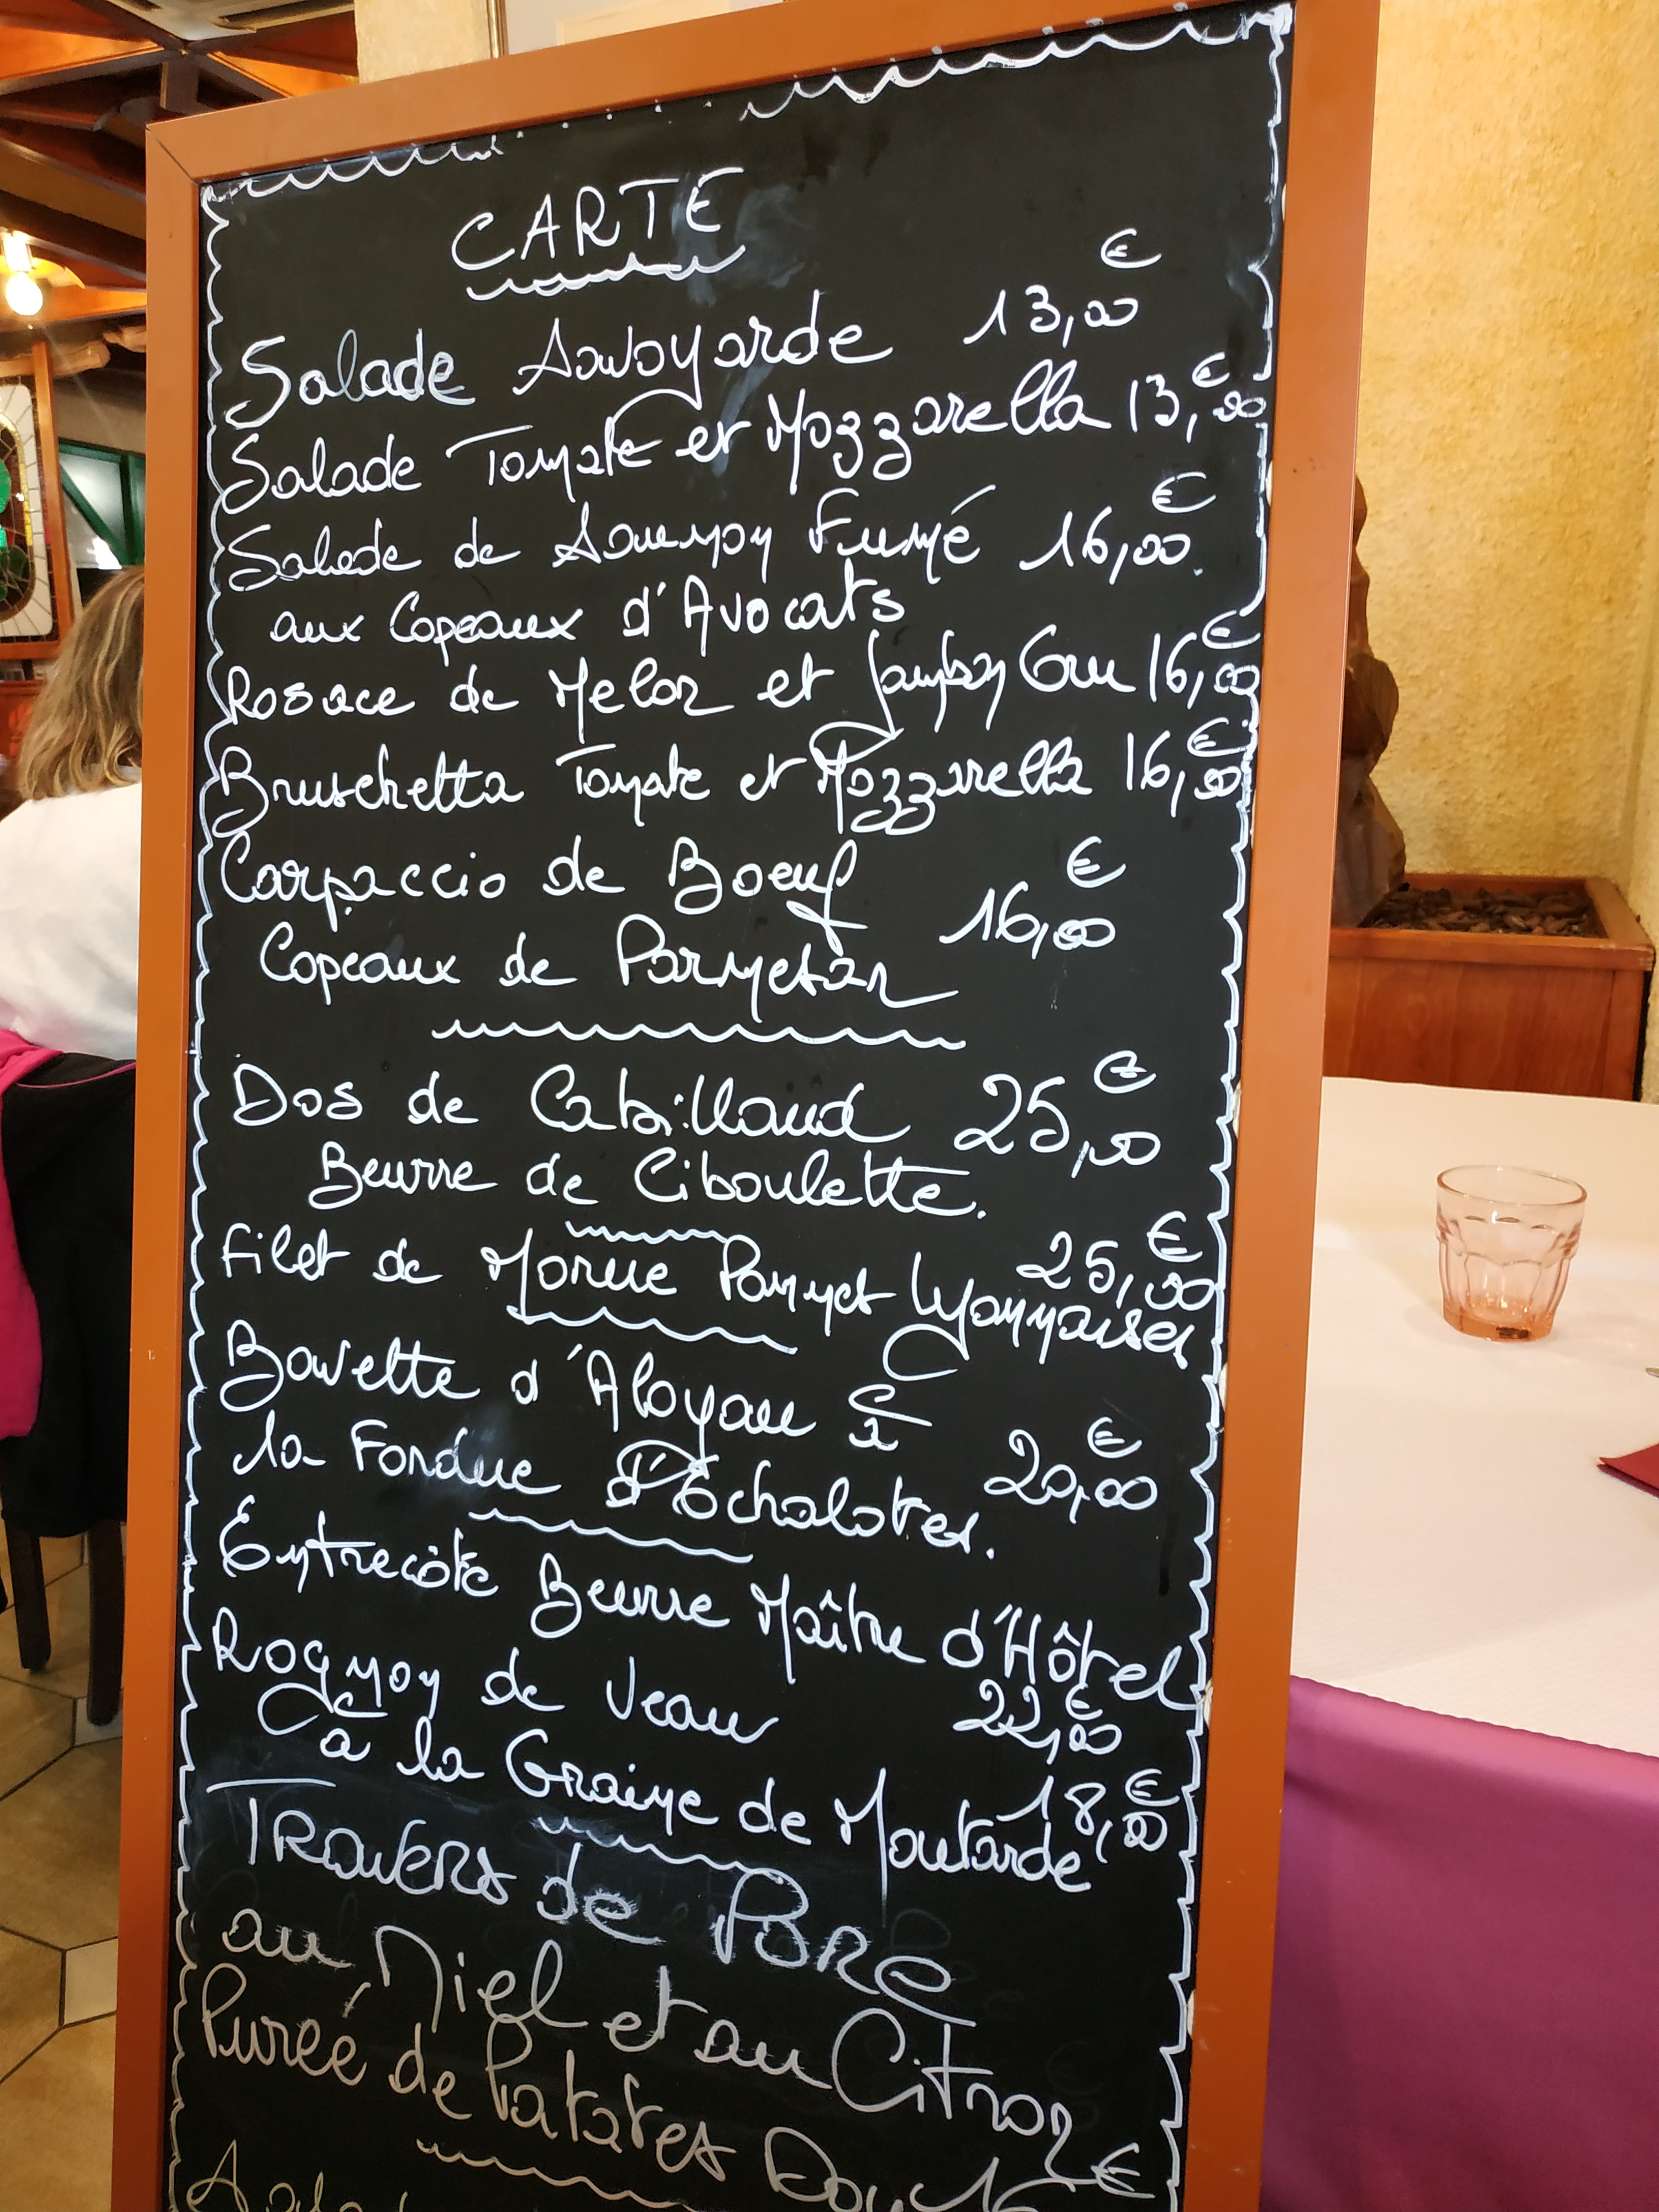 CARTE
Salade Savoyarde 13,00 €
Salade Tomate et Mozzarella 13,00 €
Salade de Saumon Fumé 16,00 €
aux Copeaux d'Avocats
Rosace de Melon et Jambon Cru 16,00 €
Bruschetta Tomate et Mozzarella 16,00 €
Carpaccio de Boeuf
16,00 €
Copeaux de Parmesan
Dos de Cabillaud 25,00 €
Beurre de Ciboulette.
Filet de Morue Pommes Lyonnaises 25,00 €
Bavette d'Aloyau à
la Fondue d'Échalotes. 20,00 €
Entrecôte Beurre Maître d'Hôtel
22,00 €
Rognon de Veau
à la Graine de Moutarde 18,00 €
TRAVERS de PORC
au Miel et au Citron
Purée de Patates €